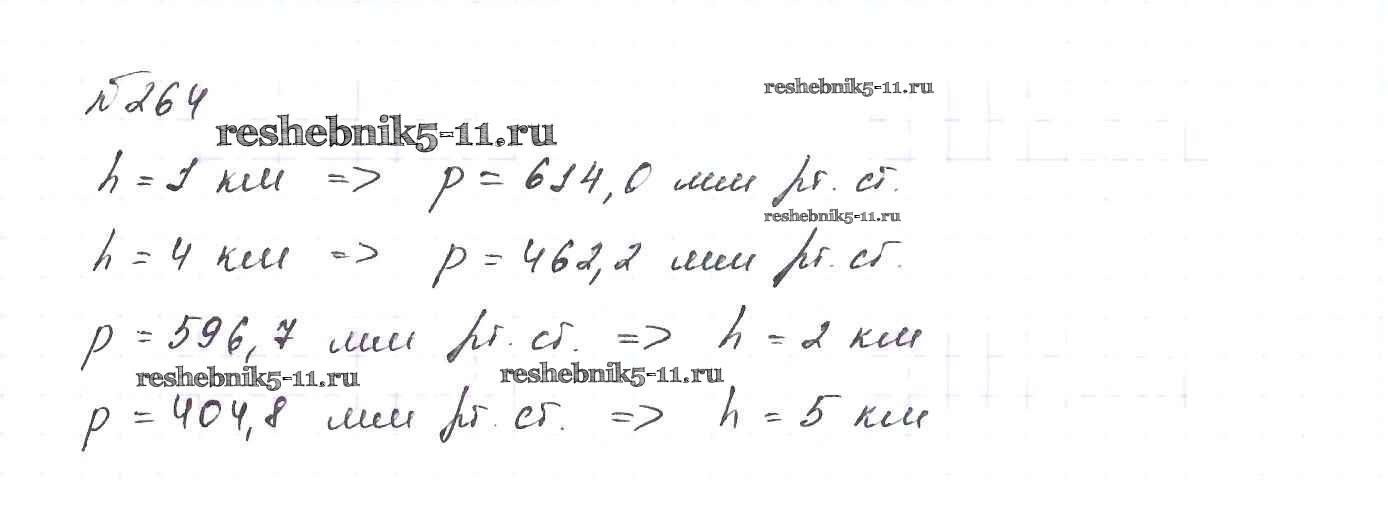 №264
reshebnik5-11.ru
reshebnik5-11.ru
h = 1 км => p = 614,0 мм рт. ст.
reshebnik5-11.ru
h = 4 км => p = 462,2 мм рт. ст.
p = 596,7 мм рт. ст. => h = 2 км
reshebnik5-11.ru reshebnik5-11.ru
p = 404,8 мм рт. ст. => h = 5 км